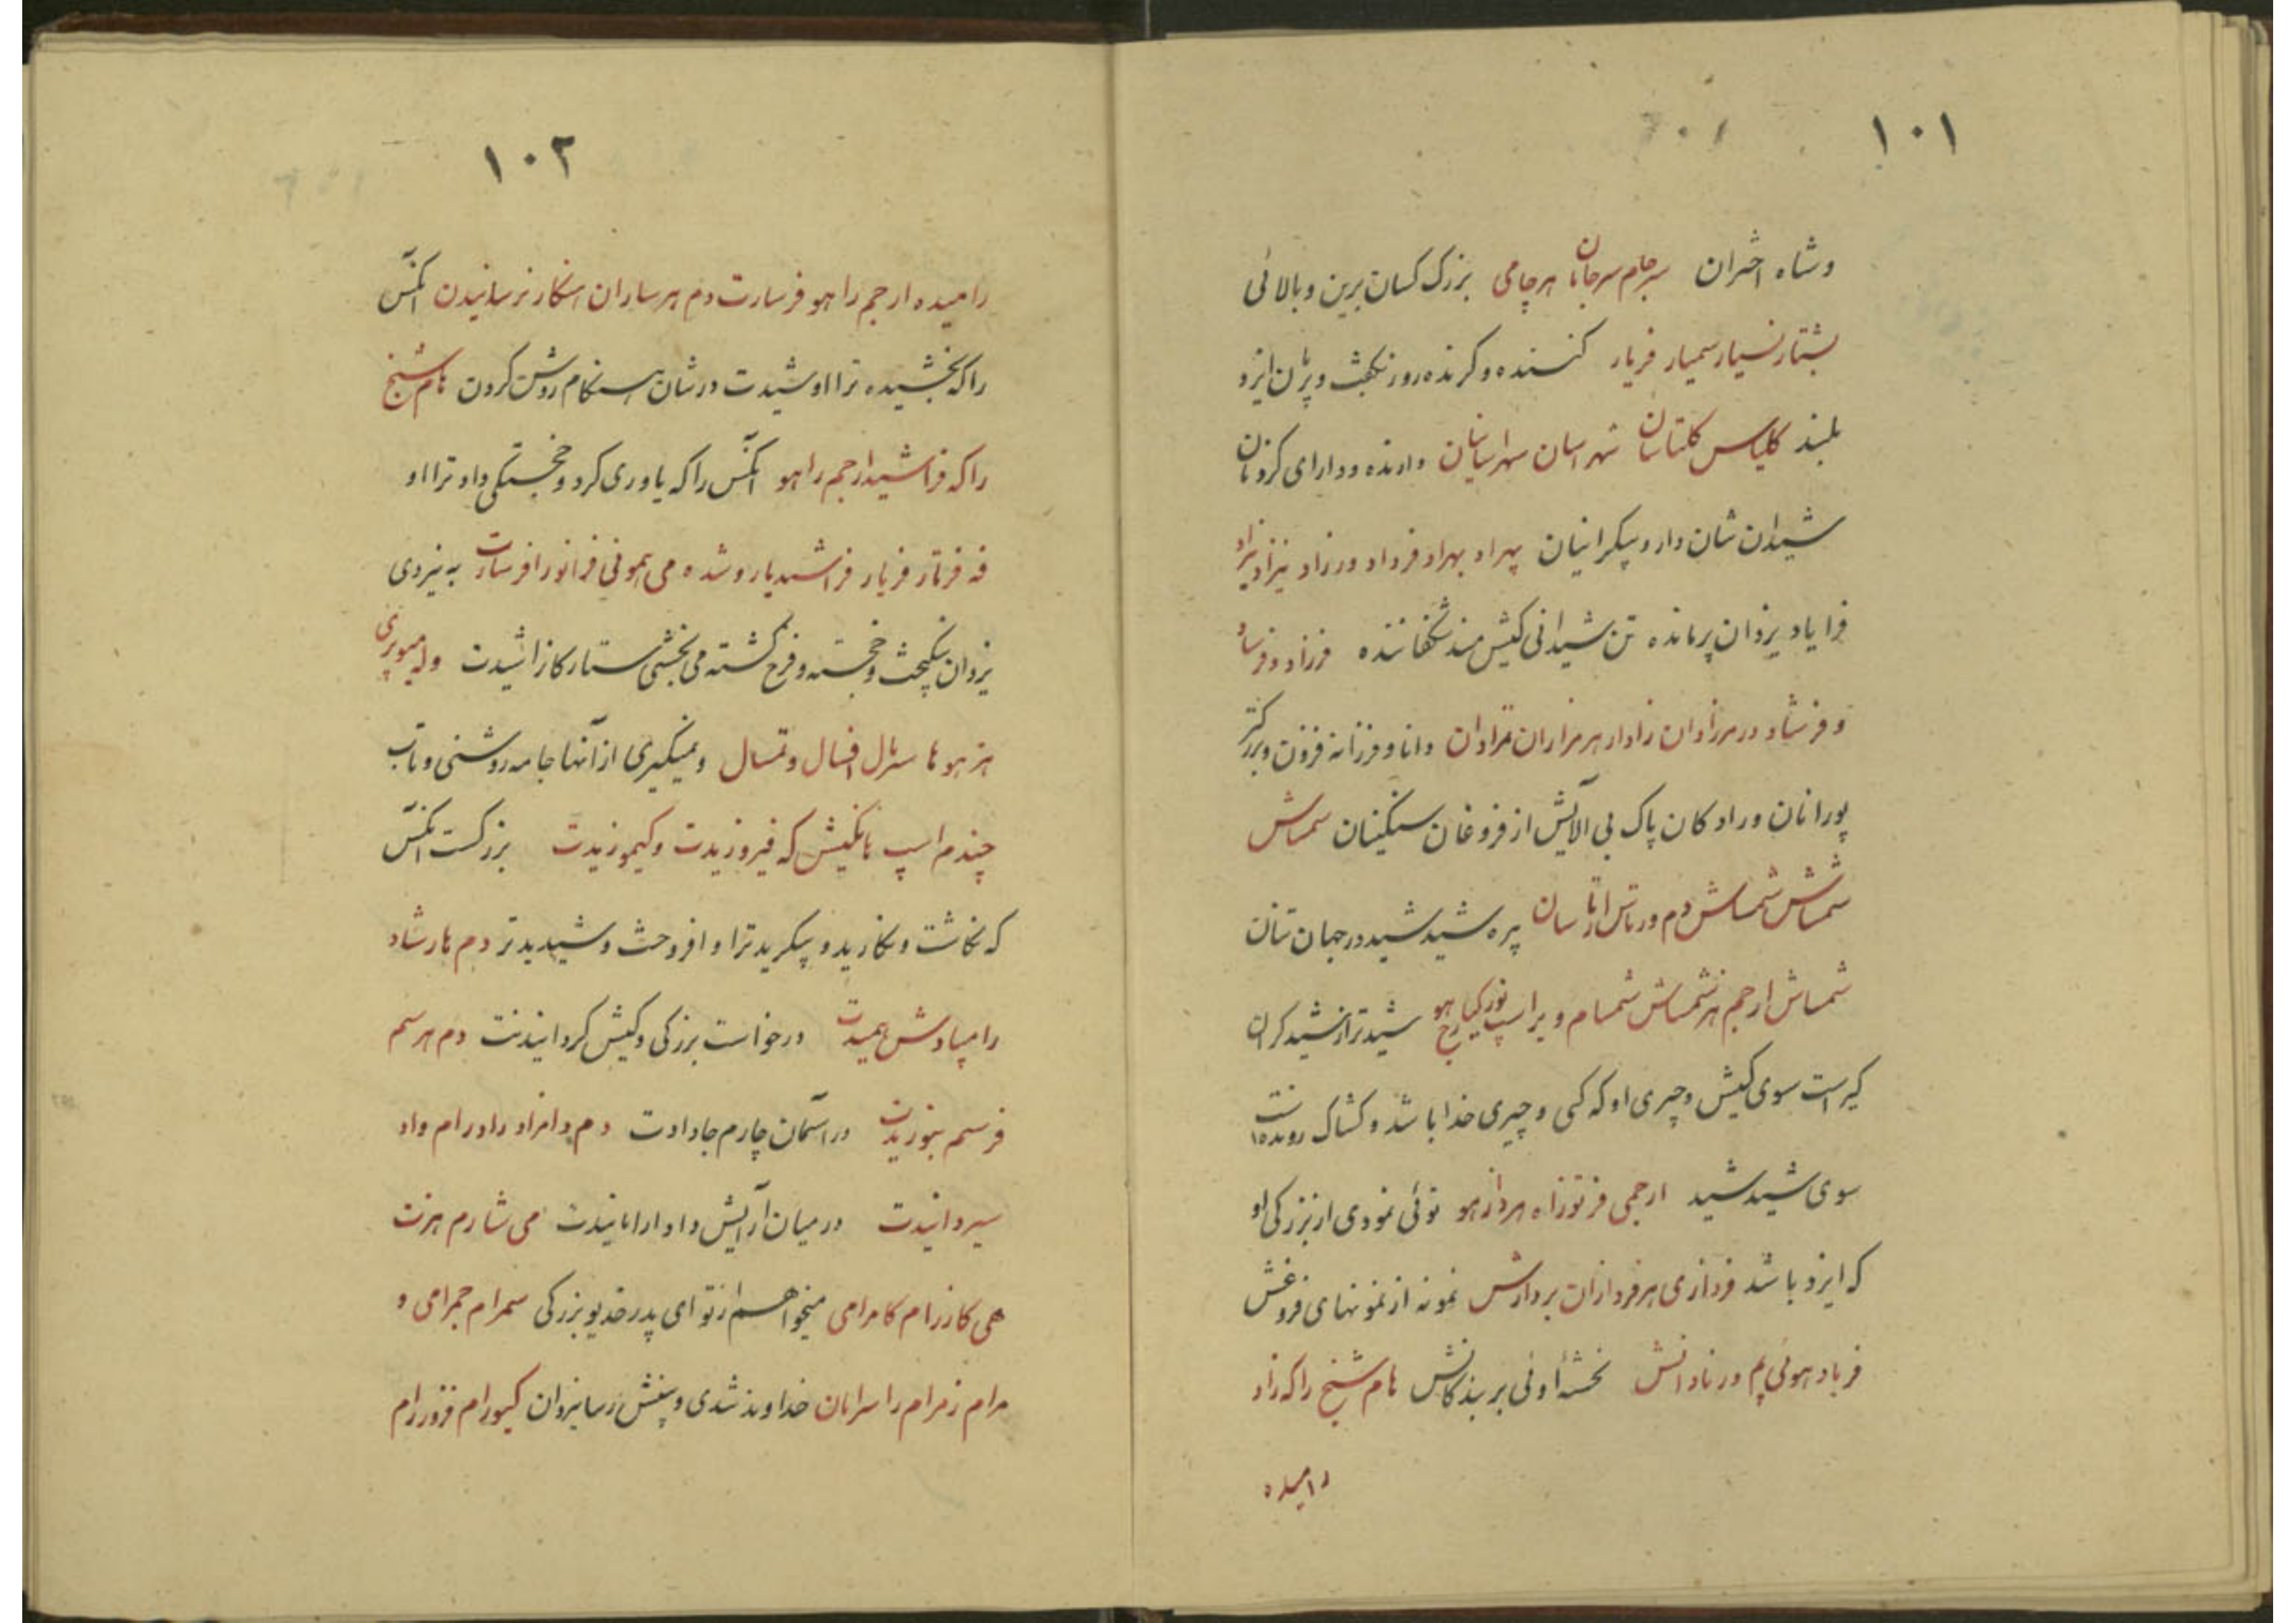 ۱۰۱
وشاه اختران سرجام سرجامان هرچامی بزرک کسان برین و بالائی
بشتار نسیار سمیار فریار کننده و کرنده روز نکبخت و پرمان ایزد
بلند کلیاس کلتاسان شهراسان سهراسیانان دارنده و دارای کردنان
شیدان شان دار و پیکرانیان بهراد بهراد فرداد ورزاد نیزاد نیزاد
فرا یاد یزدان پرمانده تن شیدانی کیش مند شکفاننده فرزاد و فرساد
و فرشاد درمزادان زادار هرمزاران مزادان دانا و فرزانه فزون و بزرکتر
پورانان و رادکان پاک بی الآیش از فروغان سنکینان سمساش
سمساش شمساش دم ورتاش ارتاسان پره شید شید در جهان تنان
شمساش ارجم هرشمساش شمسام و براسپ نورکیارج هو شیدتر از شیدکران
کیراست سوی کیش و چیری او که کی و چیری خدا باشد و کشاک رونده است
سوی شید شید ارجمی فرتوزاه هردازهو توئی نمودی از بزرکی او
که ایزد باشد فردازی هرفردازان بردارش نمونه از نمونهای فروغش
فرباد هوئی پم ورنادانش نخشه اوئی بر بندکانش هام شنخ راکه زاد
رامیده
۱۰۲
رامیده ارجم را هو فرسارت دم هرساران هنکار نرسانیدن آنکس
راکه بخشیده ترا او شیدت در شان هنکام روشن کردن هام شنخ
راکه فراشید ارجم را هو آنکس راکه یاوری کرد و خجستکی داد ترا او
فه فرتار فریار فراشید یار و شده می هموفی فرانور افرسارت به نیروی
یزدان نیکبخت و خجسته و فرخ کشته می بخشی ستارکانرا شیدت و له میوپری
هزهوها سربال افسال و تمسال و میکیری از آنها جامه روشنی و تاب
چندم اسپ هانکیش که فیروزیدت وکیموزیدت بزرکست آنکس
که نکاشت و نکارید و پیکرید ترا و افروخت و شیدیدتر دم هارشاد
رامپادش همیدت درخواست بزرکی و کیش کردانیدنت دم هرسم
فرسم بنوزیدت در آسمان چارم جا دادت دم دامزاد رادرام واد
سیردانیدت در میان آرایش داد ارامانیدت می شارم هزت
همی کارزرام کامرامی میخواهم از تو ای پدر خدیو بزرکی سمرام جمرامی و
مرام زمرام را سرابان خداوند شدی و پغش رسا یزدان کیورام فزورام